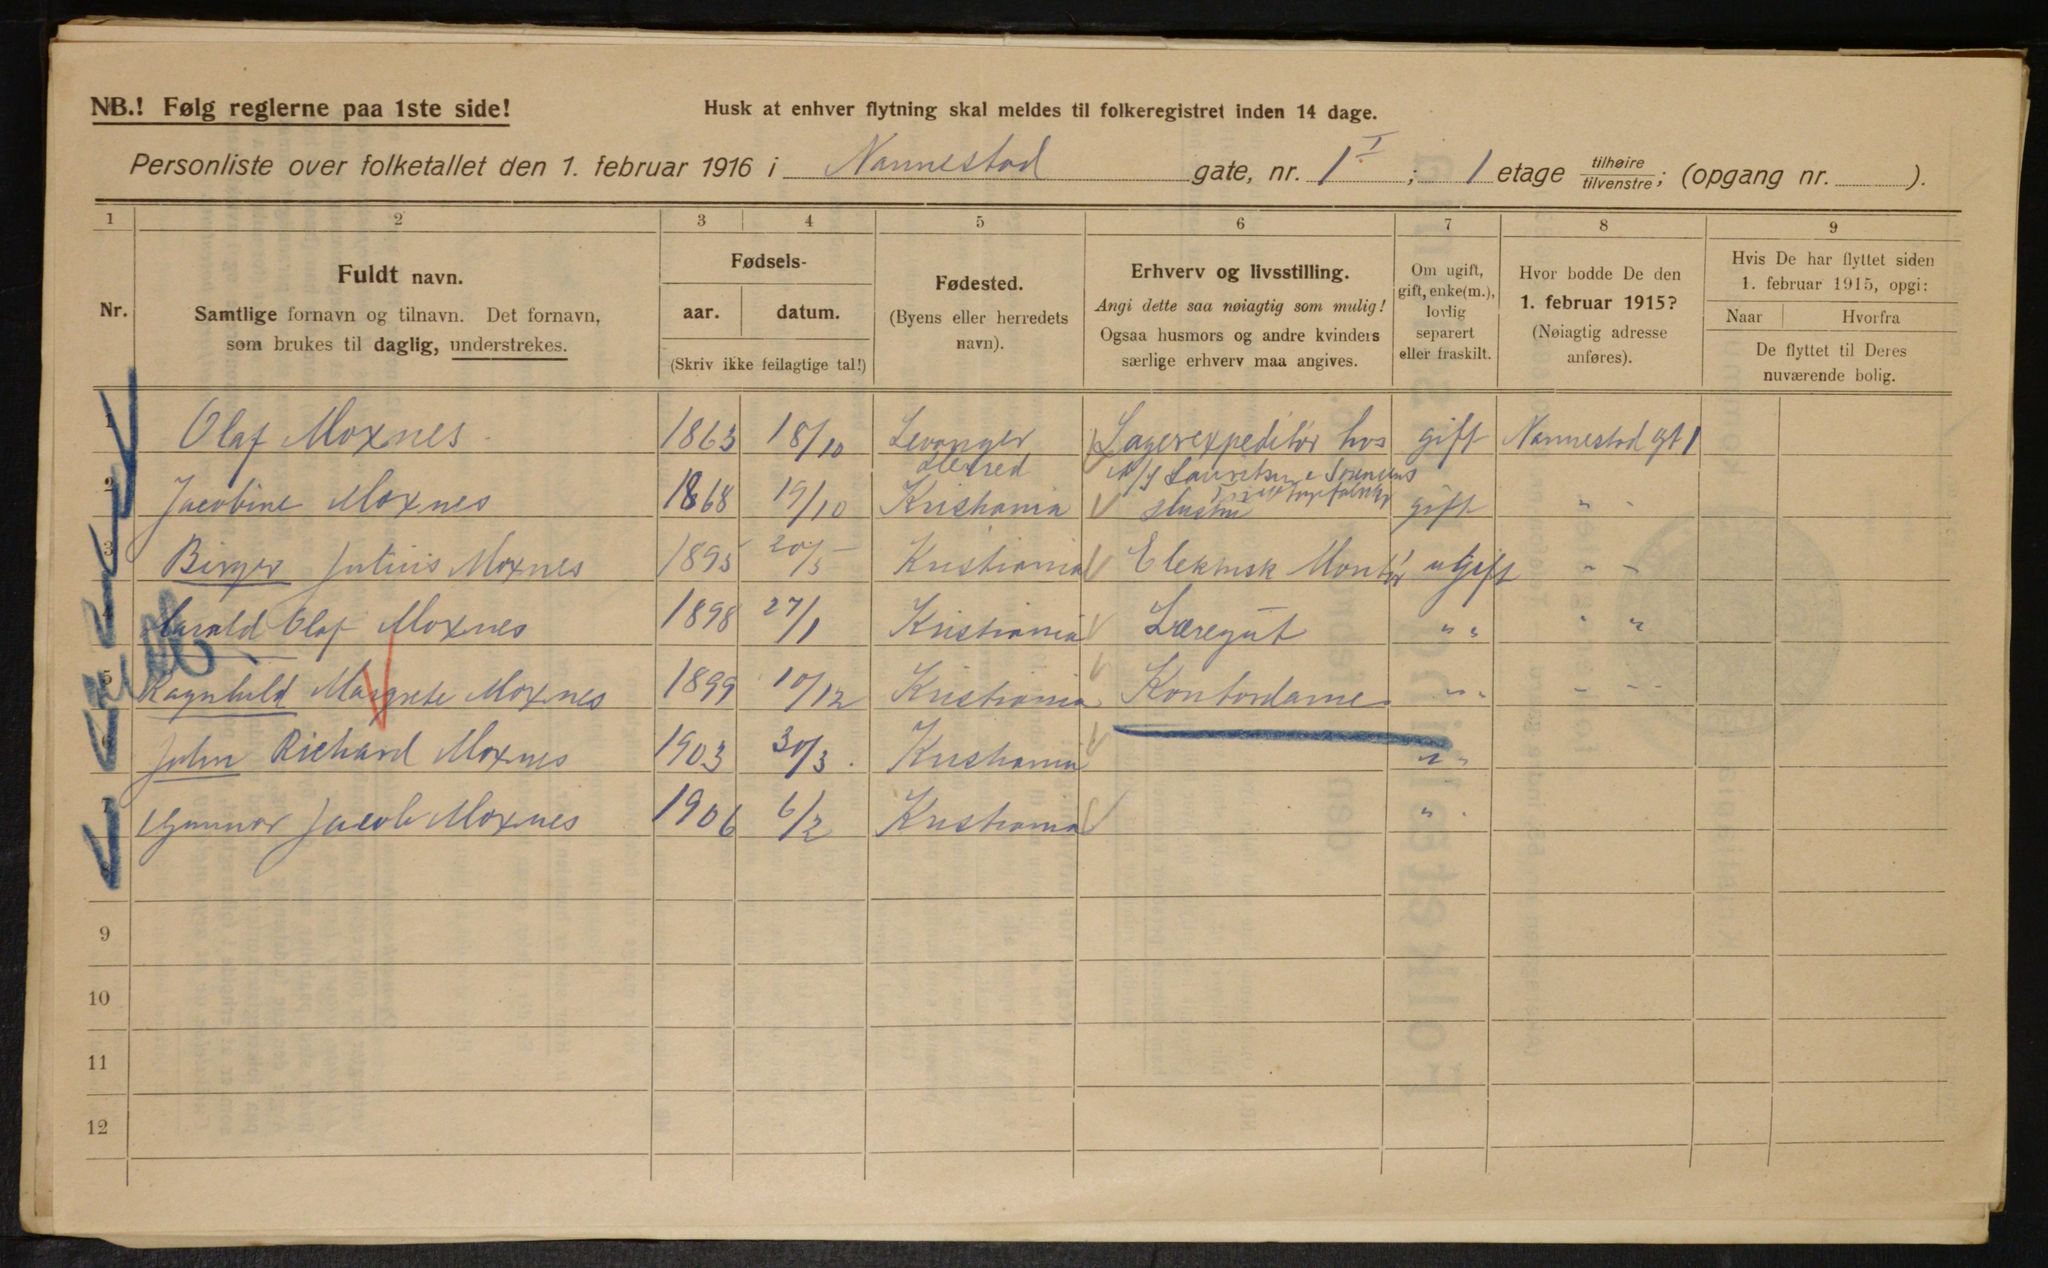 NB.! Følg reglerne paa 1ste side!
Husk at enhver flytning skal meldes til folkeregistret inden 14 dage.
Personliste over folketallet den 1. februar 1916 i Nannestad gate, nr. 1 I; 1 etage tilhøire/tilvenstre; (opgang nr. ).
1 2 3 4 5 6 7 8 9
Nr.
Fuldt navn.
Samtlige fornavn og tilnavn. Det fornavn,
som brukes til daglig, understrekes.
Fødsels-
aar. datum.
(Skriv ikke feilagtige tal!)
Fødested.
(Byens eller herredets
navn).
Erhverv og livsstilling.
Angi dette saa nøiagtig som mulig!
Ogsaa husmors og andre kvinders
særlige erhverv maa angives.
Om ugift,
gift, enke(m.),
lovlig
separert
eller fraskilt.
Hvor bodde De den
1. februar 1915?
(Nøiagtig adresse
anføres).
Hvis De har flyttet siden
1. februar 1915, opgi:
Naar Hvorfra
De flyttet til Deres
nuværende bolig.
1 Olaf Moxnes 1863 18/10 Levanger Lagerexpeditör hos gift Nannestad gt 1
Herred A/S Lauritzen & Sørensens
2 Jacobine Moxnes 1868 19/10 Kristiania Hustru gift " "
3 Birger Julius Moxnes 1895 20/5 Kristiania Elektrisk Montør ugift " "
4 Harald Olaf Moxnes 1898 27/1 Kristiania Læregut " " " "
5 Ragnhild Margrete Moxnes 1899 10/12 Kristiania Kontordame " " " "
6 John Richard Moxnes 1903 30/3 Kristiania " "
7 Gunnar Jacob Moxnes 1906 6/2 Kristiania "
8
9
10
11
12